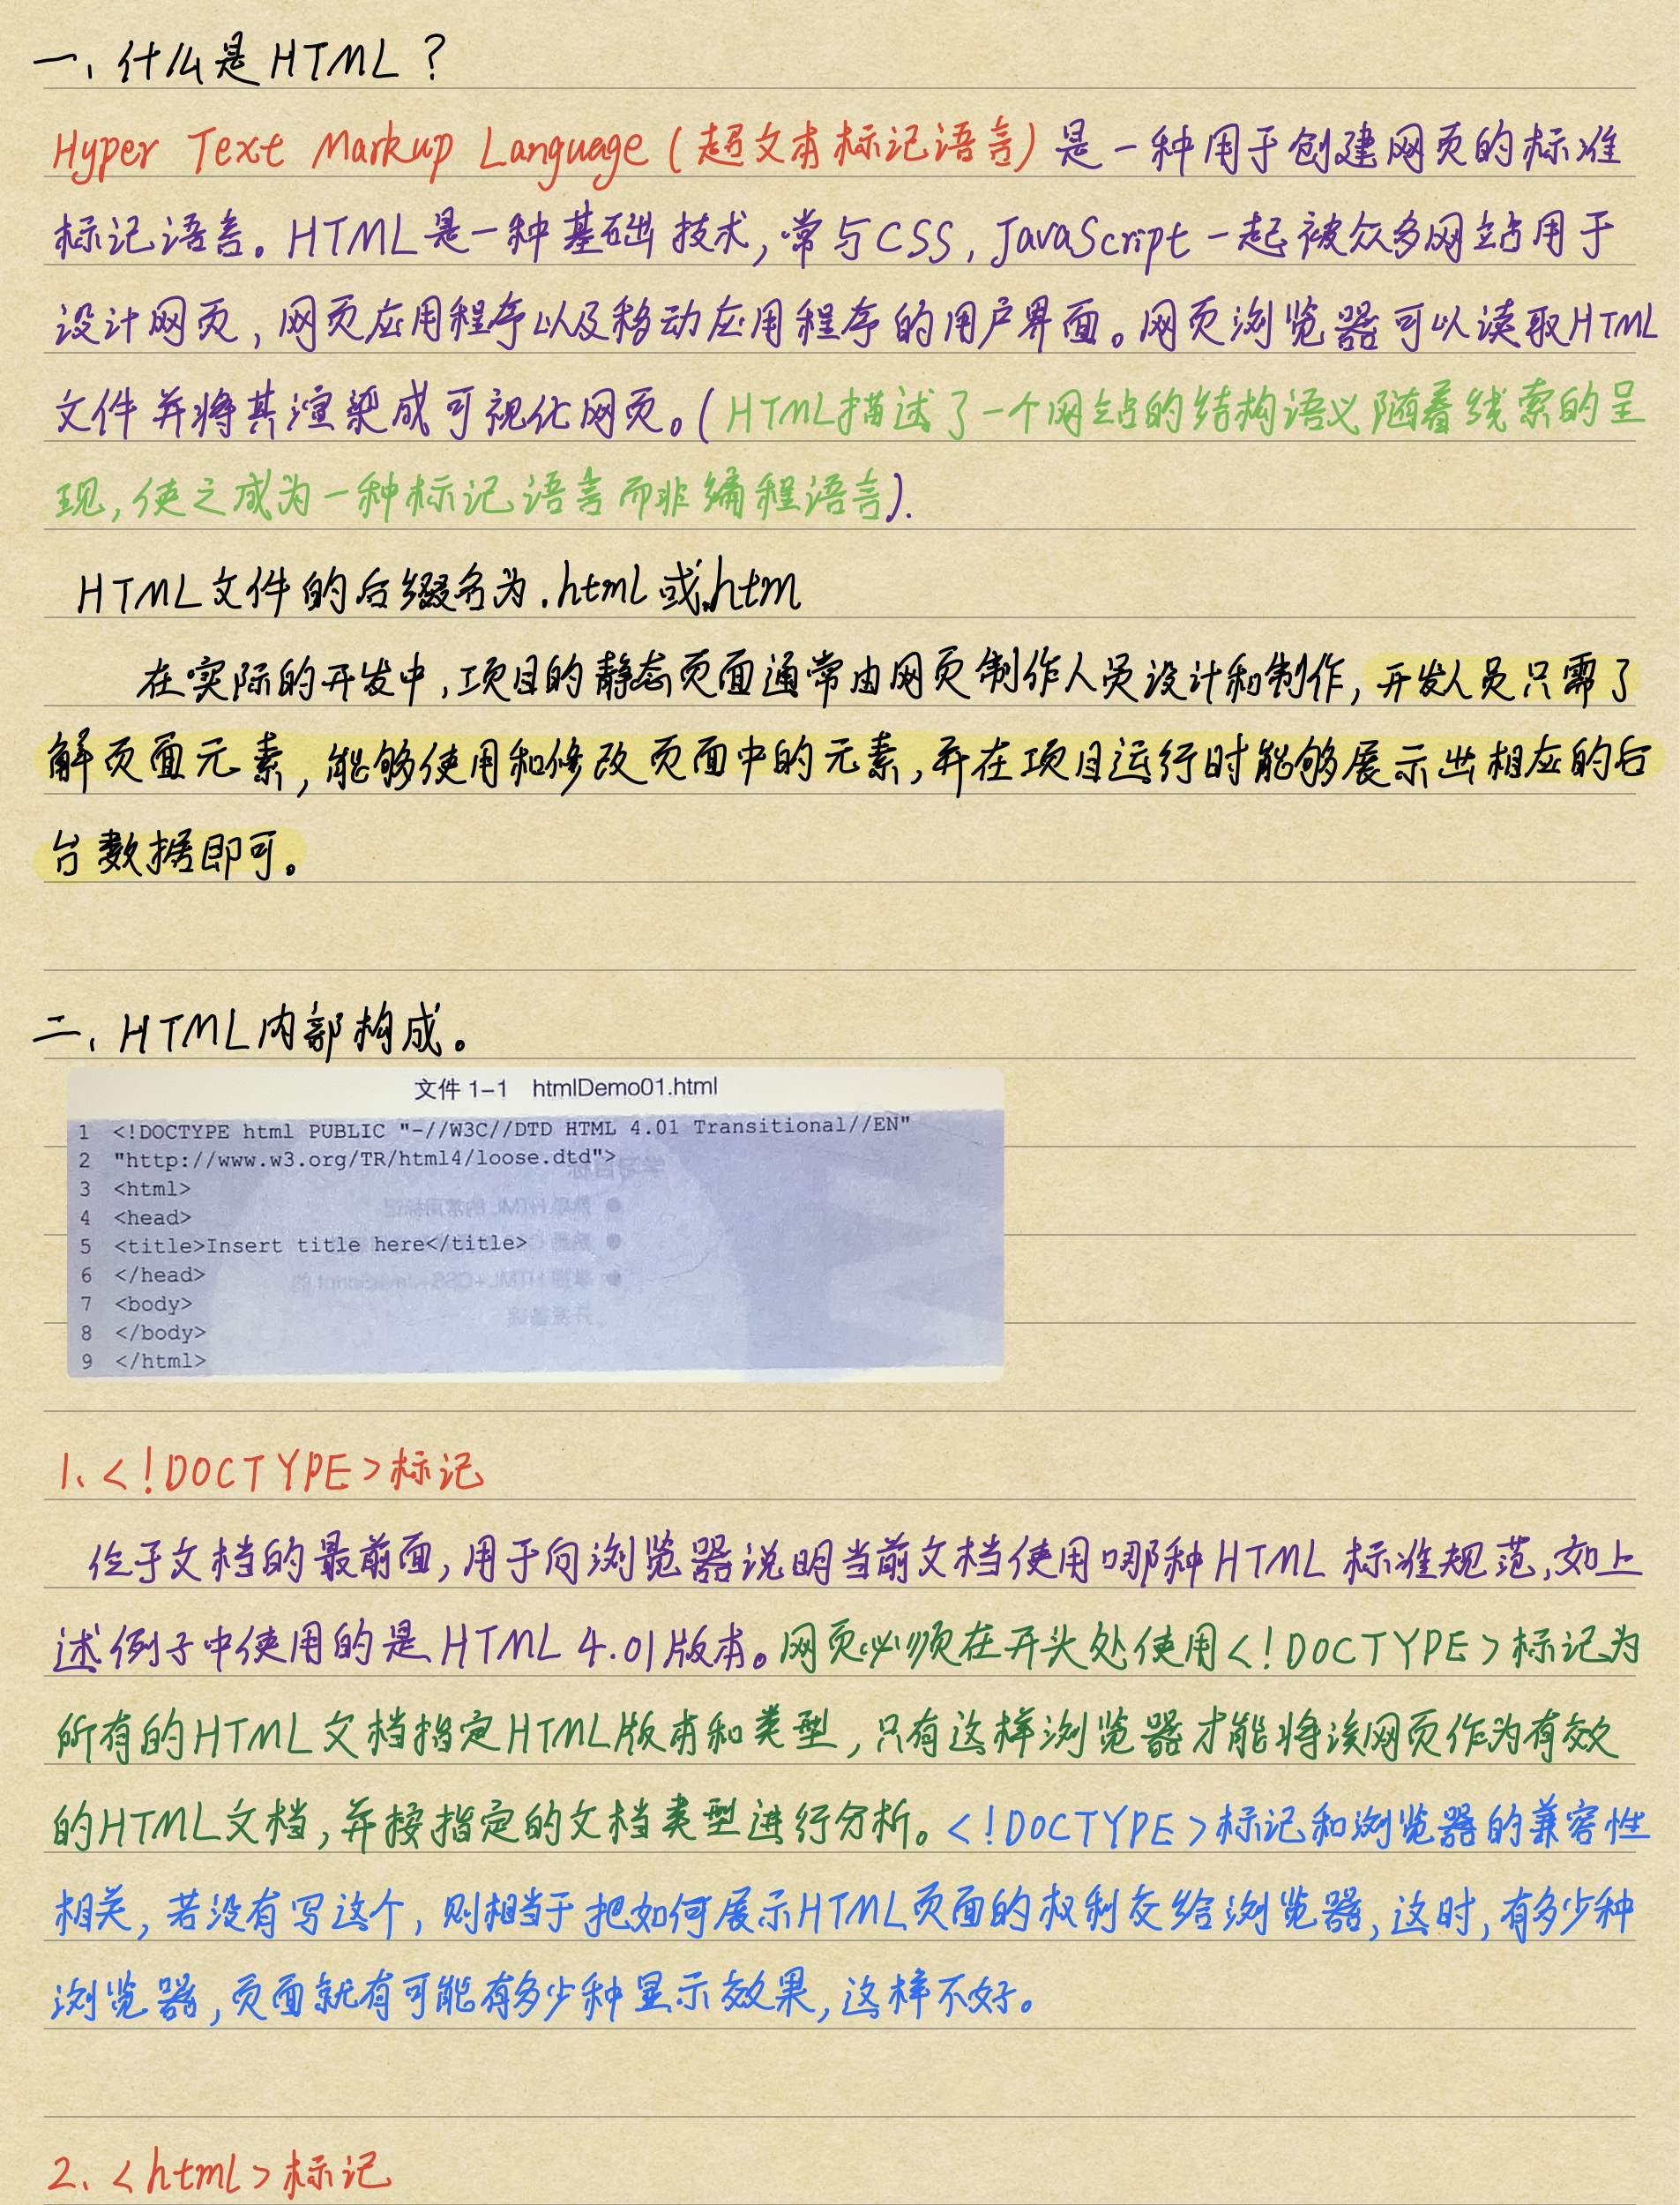 一、什么是HTML？
Hyper Text Markup Language (超文本标记语言) 是一种用于创建网页的标准
标记语言。HTML是一种基础技术,常与CSS,JavaScript一起被众多网站用于
设计网页,网页应用程序以及移动应用程序的用户界面。网页浏览器可以读取HTML
文件并将其渲染成可视化网页。(HTML描述了一个网站的结构语义随着线索的呈
现,使之成为一种标记语言而非编程语言).
HTML文件的后缀名为.html或.htm
在实际的开发中,项目的静态页面通常由网页制作人员设计和制作,开发人员只需了
解页面元素,能够使用和修改页面中的元素,并在项目运行时能够展示出相应的后
台数据即可。
二、HTML内部构成。
文件 1-1 htmlDemo01.html
1 <!DOCTYPE html PUBLIC "-//W3C//DTD HTML 4.01 Transitional//EN"
2 "http://www.w3.org/TR/html4/loose.dtd">
3 <html>
4 <head>
5 <title>Insert title here</title>
6 </head>
7 <body>
8 </body>
9 </html>
1、<!DOCTYPE>标记
位于文档的最前面,用于向浏览器说明当前文档使用哪种HTML标准规范,如上
述例子中使用的是HTML 4.01版本。网页必须在开头处使用<!DOCTYPE>标记为
所有的HTML文档指定HTML版本和类型,只有这样浏览器才能将该网页作为有效
的HTML文档,并按指定的文档类型进行分析。<!DOCTYPE>标记和浏览器的兼容性
相关,若没有写这个,则相当于把如何展示HTML页面的权利交给浏览器,这时,有多少种
浏览器,页面就有可能有多少种显示效果,这样不好。
2、<html>标记